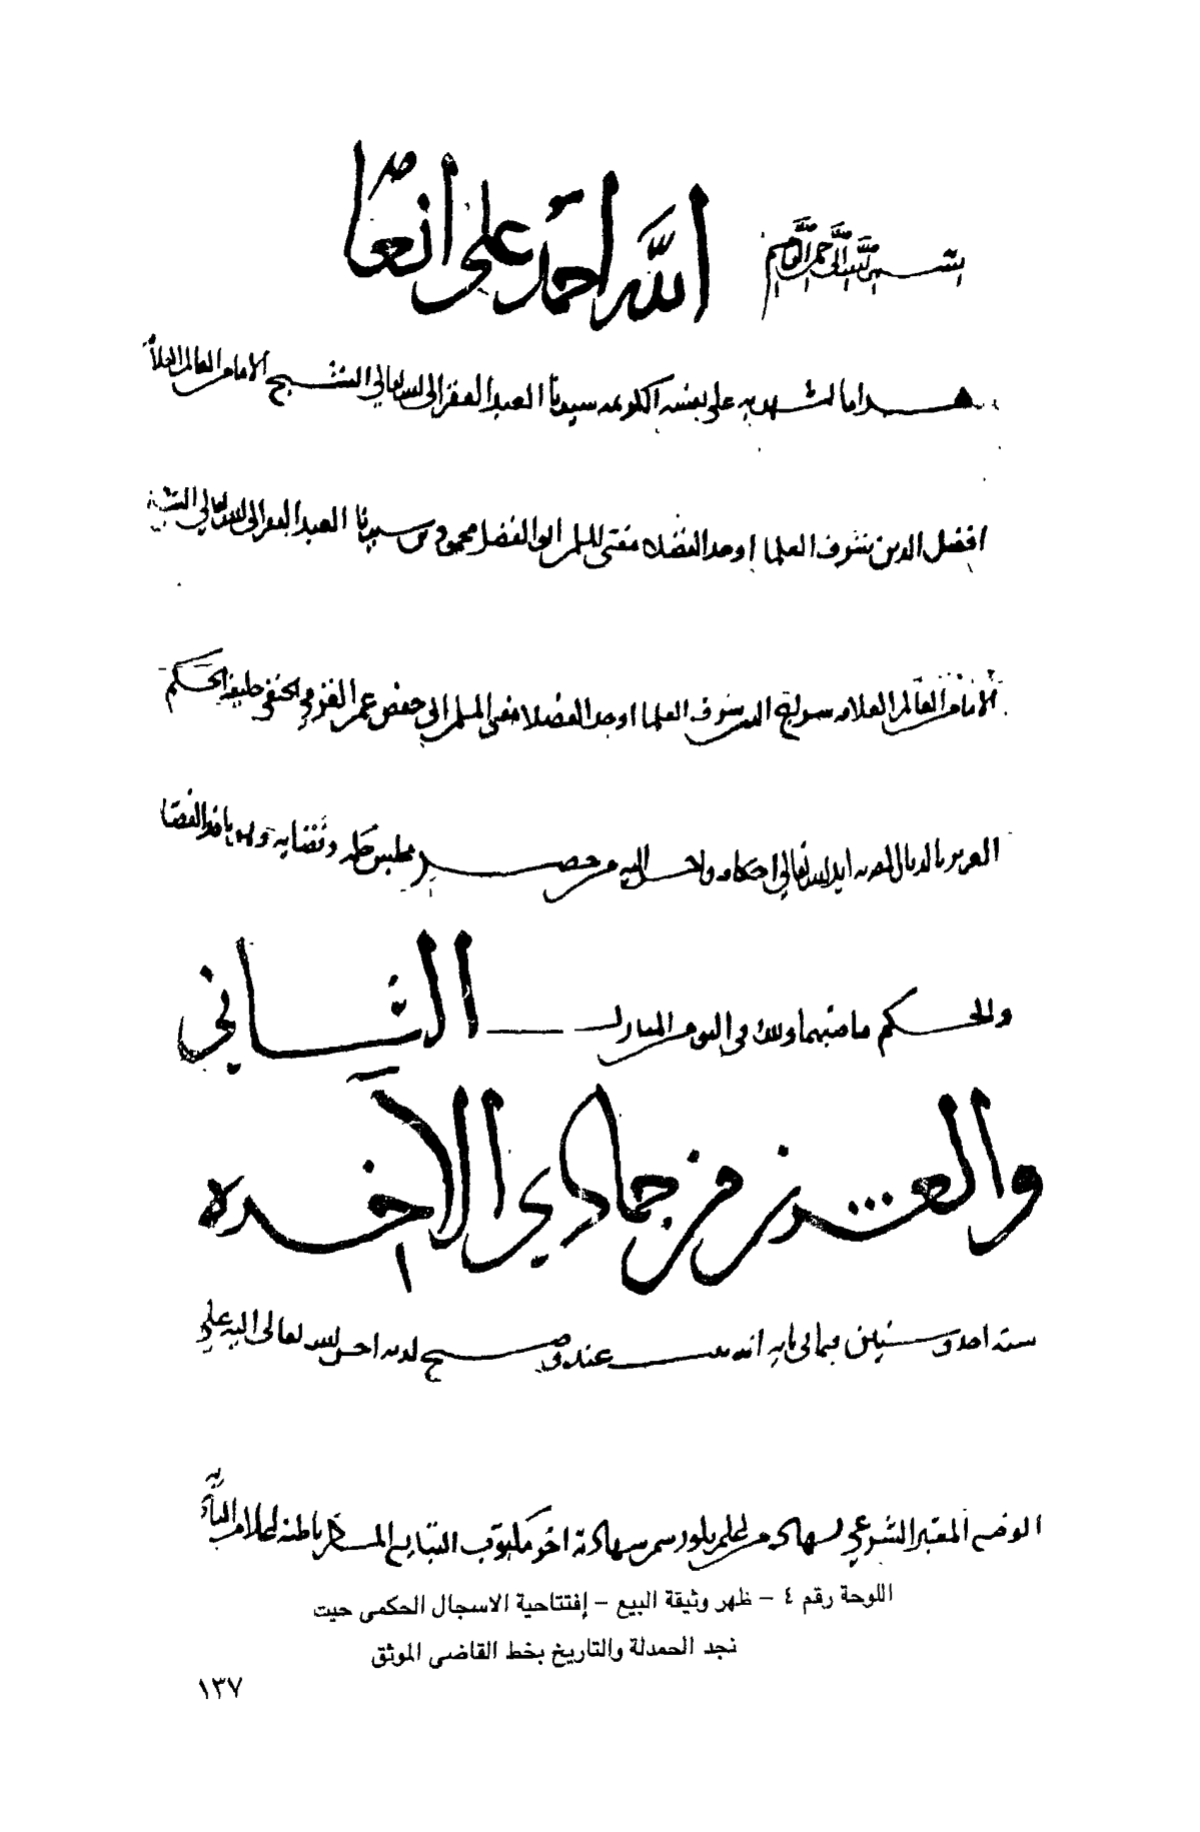 بسم الله الرحمن الرحيم
الله احمد على انعامه
هذا ما اشهد به على نفسه الكريمه سيدنا العبد الفقير الى الله تعالى الشيخ الامام العالم العلامة
افضل الدين شرف العلما اوحد الفضلا مفتى المسلمين ابو الفضل محمود بن سيدنا العبد الفقير الى الله تعالى الشيخ
الامام العالم العلامه سراج الدين شرف العلما اوحد الفضلا مفتى المسلمين ابى حفص عمر القرمى الحنفى خليفة الحكم
العزيز بالديار المصريه ايد الله تعالى احكامه واحسن اليه من حضر مجلس حكمه وقضايه وهو نافذ القضا
والحكم ماضيهما وذلك فى اليوم المبارك الثاني
والعشرين من جمادي الاخره
سنة احدى وستين وثمانى مايه انه ثبت عنده وصح لديه احسن الله تعالى اليه على
الوضع المعتبر الشرعي بشهادة اخر مكتوب التبايع المسطر باطنه
اللوحة رقم ٤ – ظهر وثيقة البيع – إفتتاحية الاسجال الحكمى حيت
نجد الحمدلة والتاريخ بخط القاضى الموثق
١٣٧